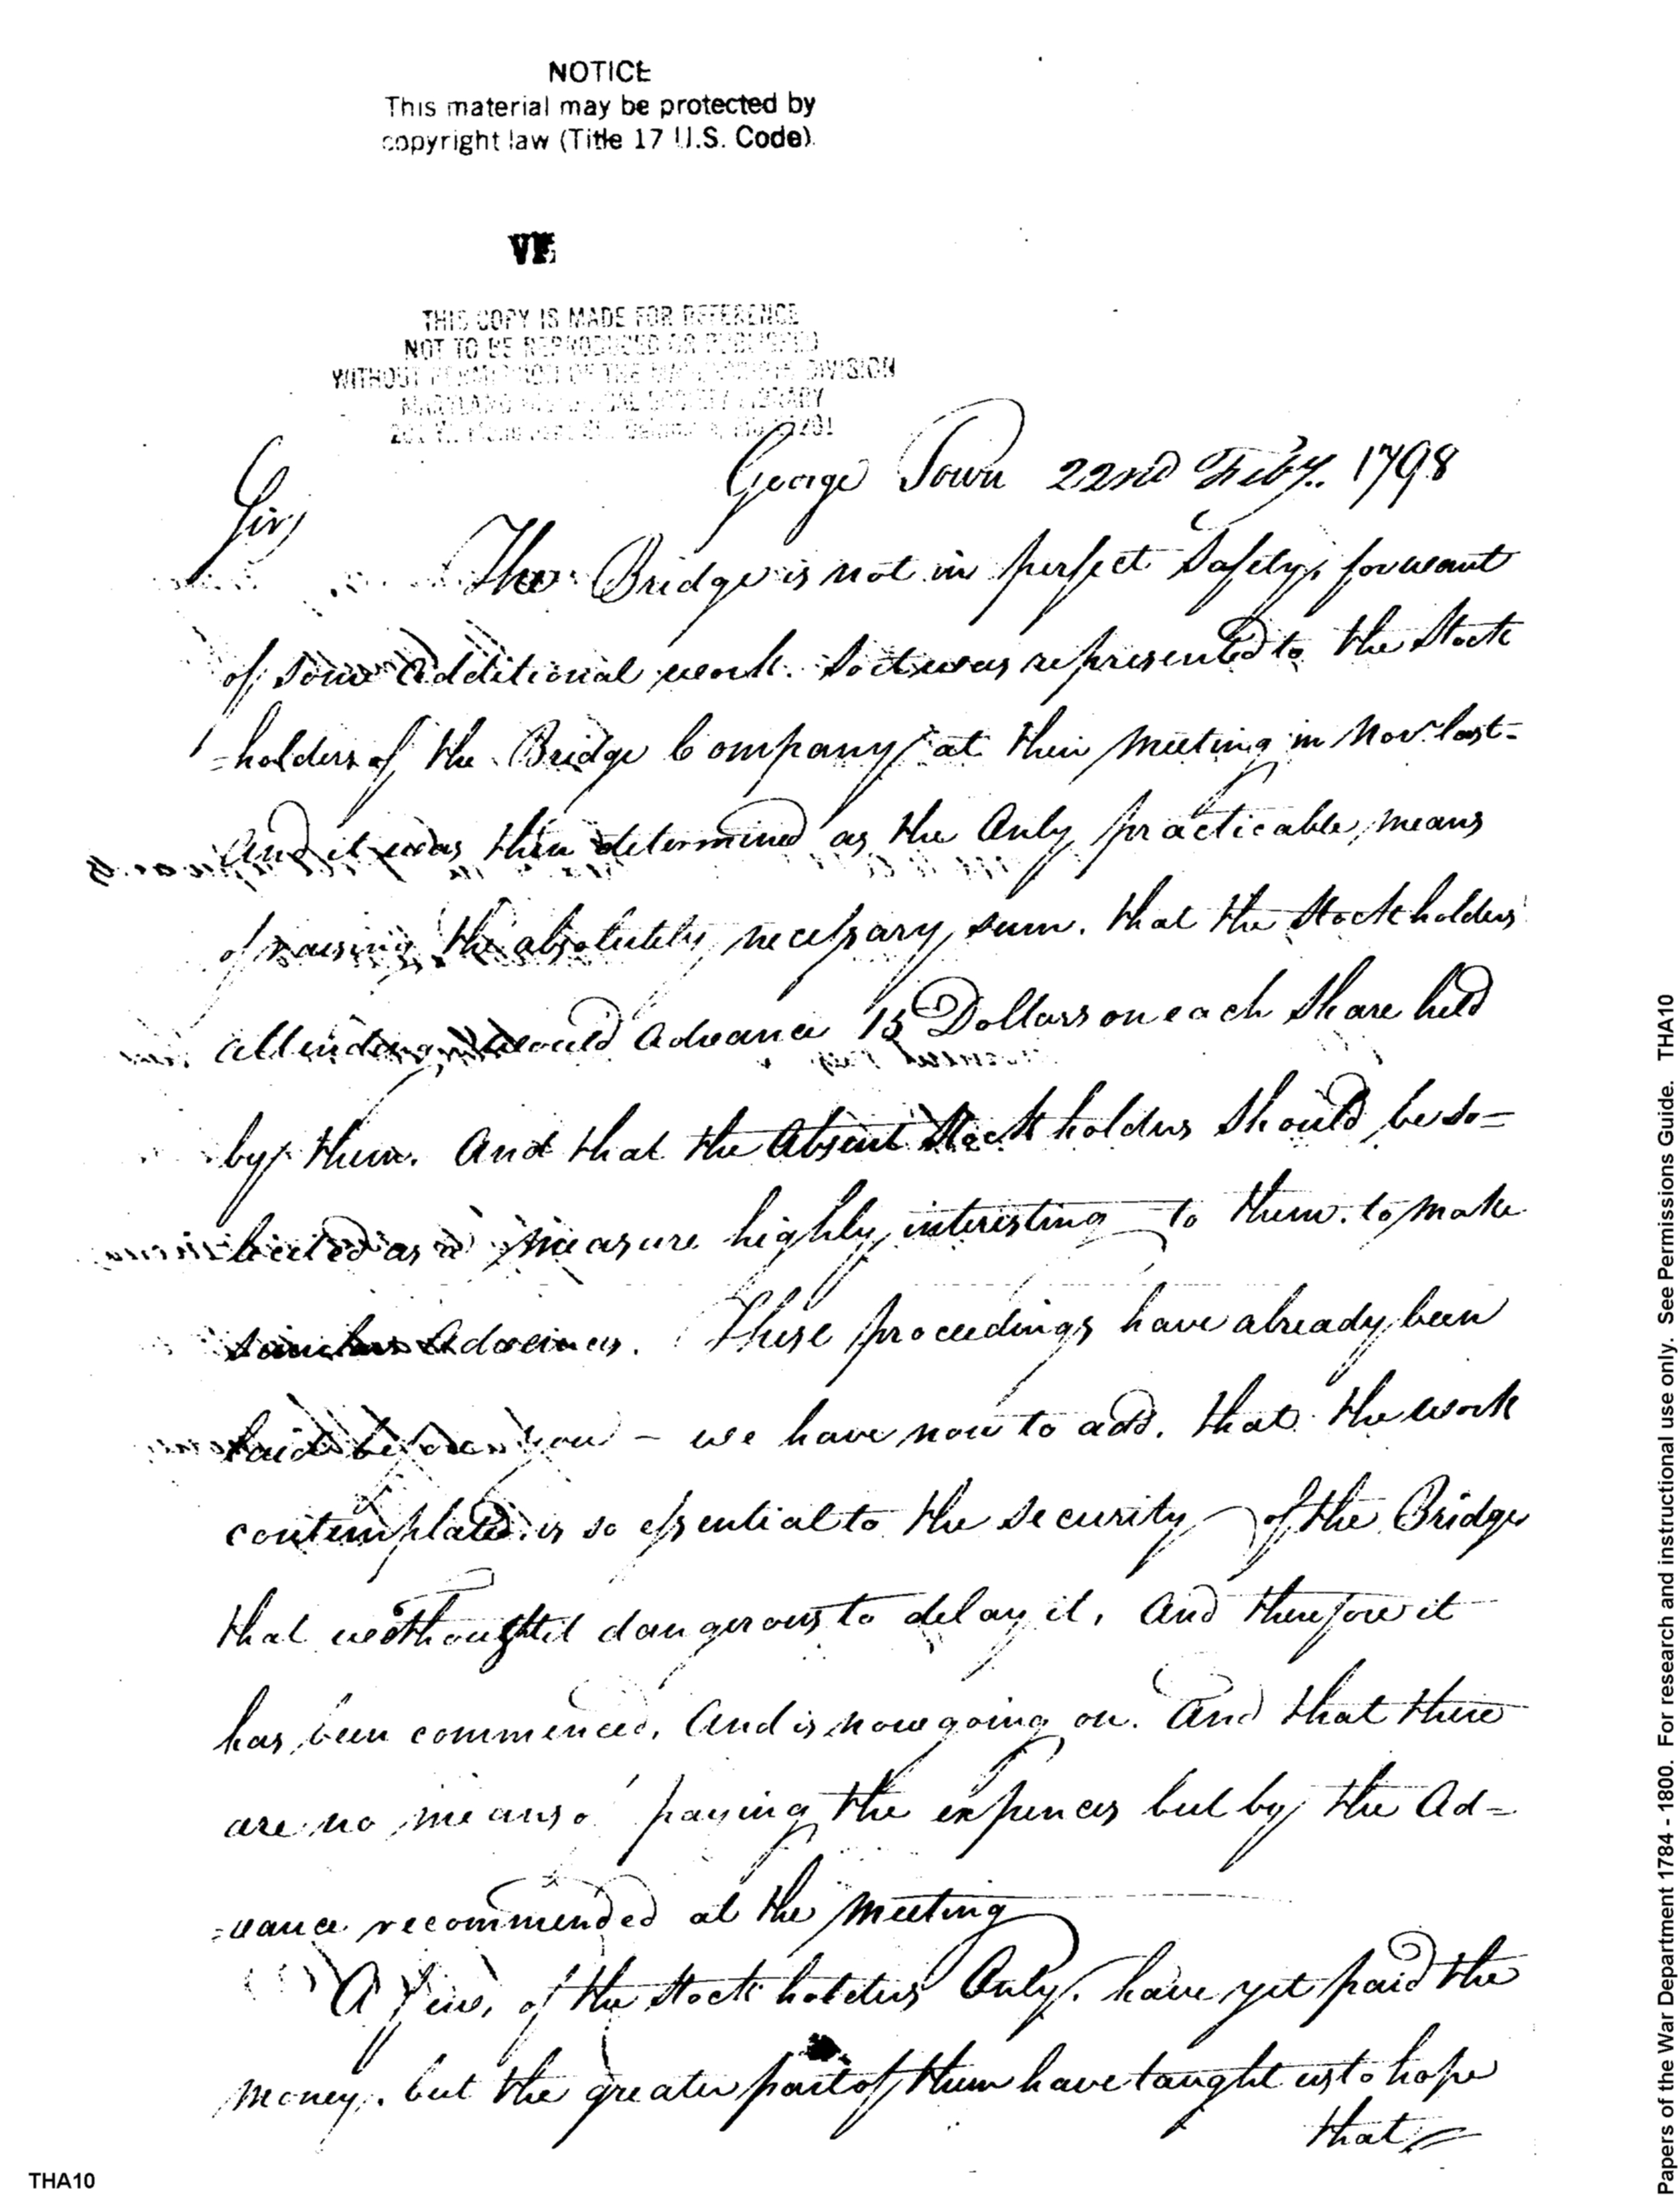 NOTICE
This material may be protected by
copyright law (Title 17 U.S. Code).
THIS COPY IS MADE FOR REFERENCE
NOT TO BE REPRODUCED OR PUBLISHED
WITHOUT PERMISSION OF THE MANUSCRIPTS DIVISION
MARYLAND HISTORICAL SOCIETY LIBRARY
George Town 22nd Feby. 1798
Sir,
The Bridge is not in perfect Safety, for want
of some additional work. So it was represented to the Stock
=holders of the Bridge Company at their meeting in Novr last-
And it was then determined as the Only practicable means
of raising the absolutely necessary sum. that the Stockholders
attending would advance 15 Dollars on each Share held
by them. And that the Absent Stockholders should be so=
licited as a measure highly interesting to them. to make
similar Advances. These proceedings have already been
laid before you - we have now to add. that the work
contemplated is so essential to the security of the Bridge
that we thought it dangerous to delay it, And therefore it
has been commenced, And is now going on. And that there
are no means o paying the expences but by the Ad=
=vance recommended at the meeting
A few, of the Stockholders Only. have yet paid the
money. but the greater part of them have taught us to hope
that
THA10
Papers of the War Department 1784 - 1800. For research and instructional use only. See Permissions Guide. THA10